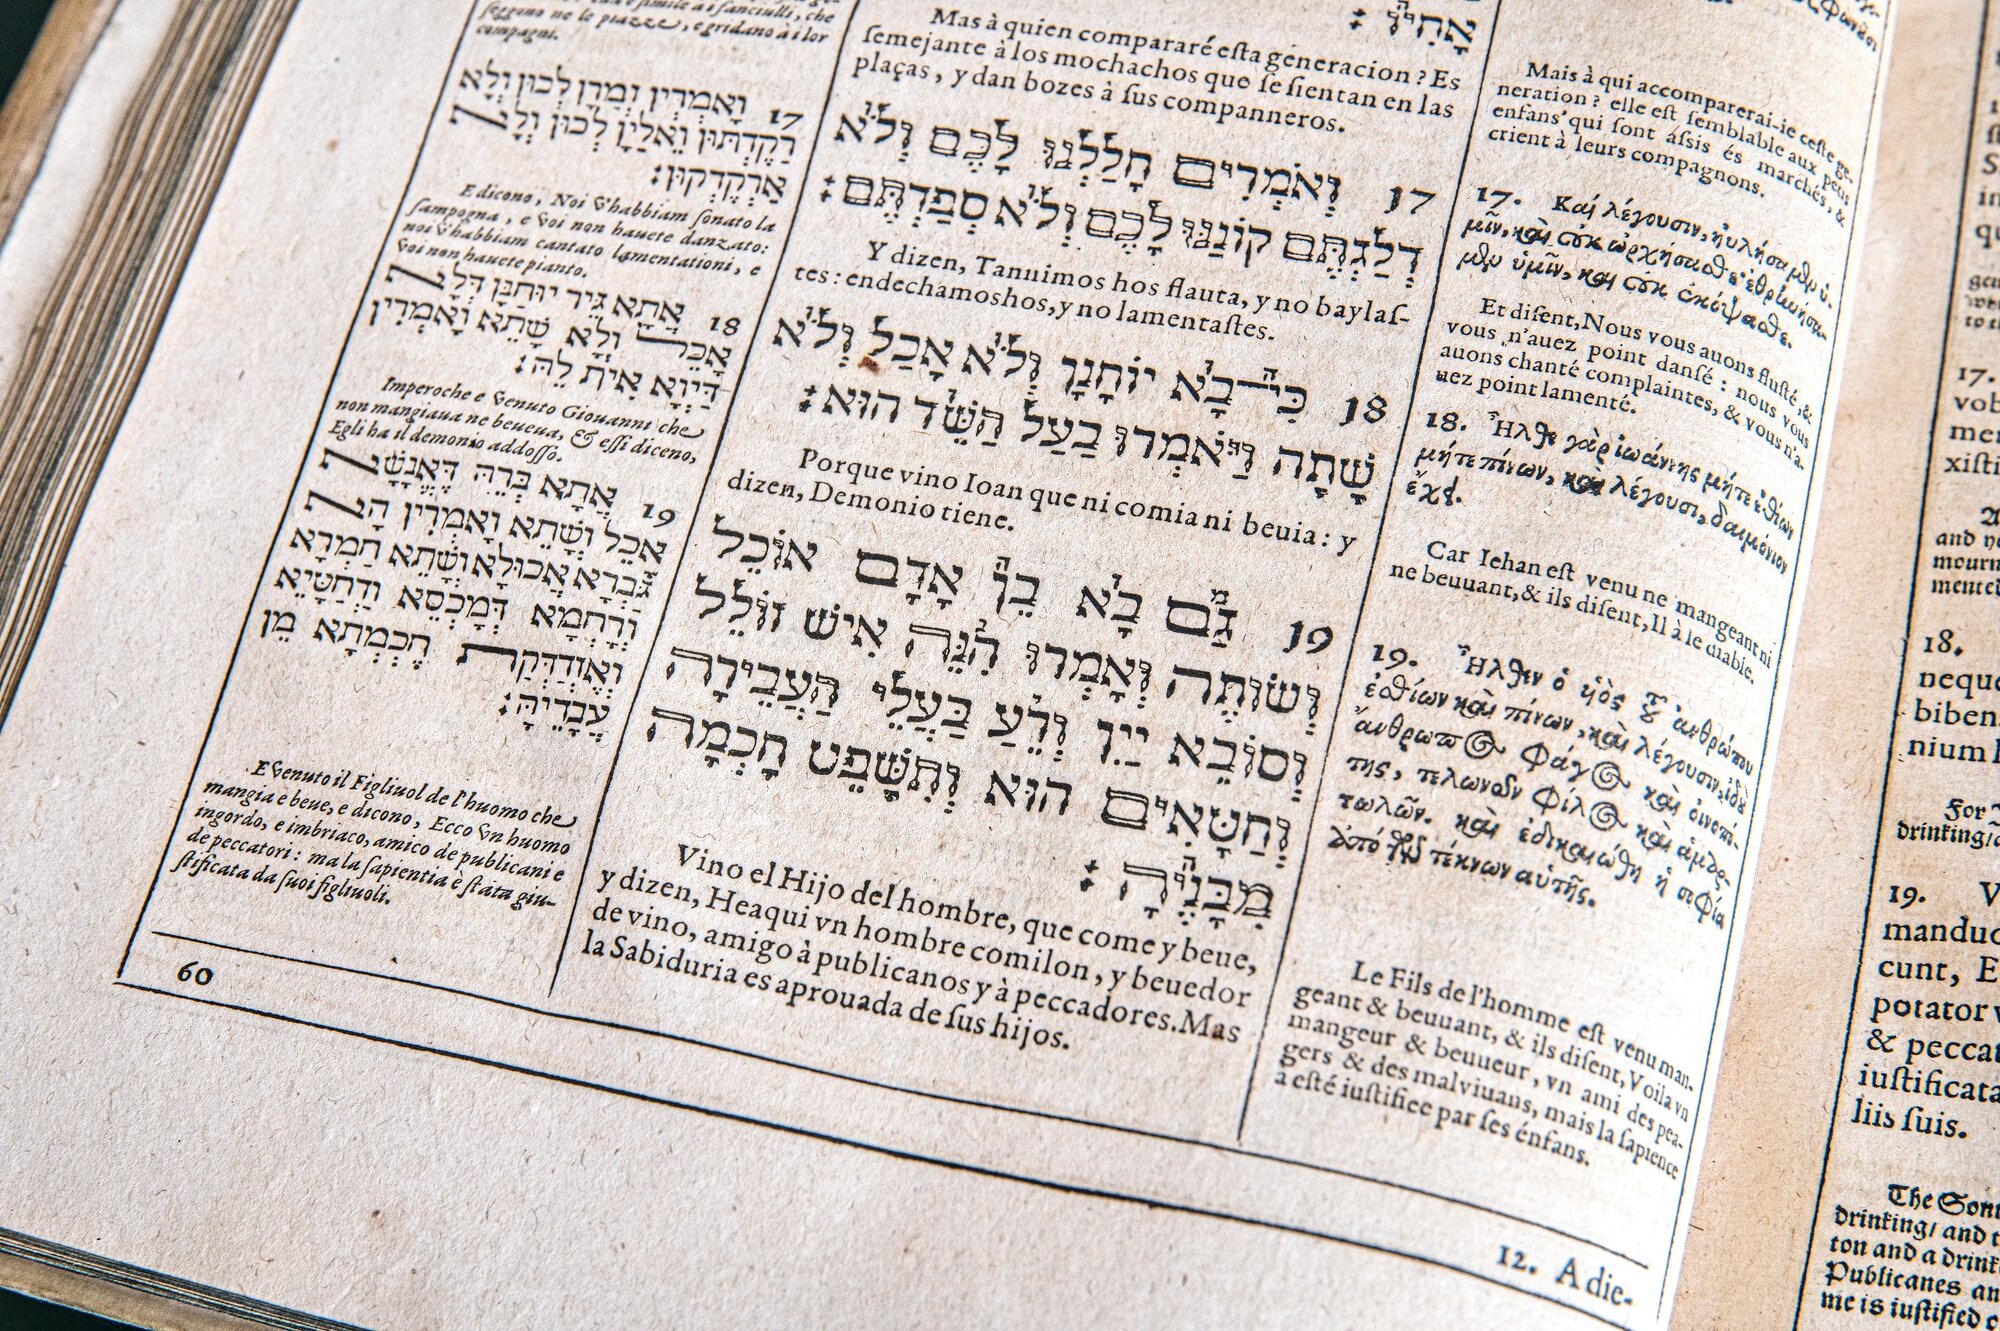 seggono ne le piazze, e gridano à i lor
compagni.
17 וְאָמְרִין זְמַרְן לְכוּן וְלָא
רַקֶדְתּוּן וֶאלַיְן לְכוּן וְלָא
אַרְקֶדְקוּן:
E dicono, Noi v'habbiam sonato la
sampogna, e voi non hauete danzato:
noi v'habbiam cantato lamentationi, e
voi non hauete pianto.
18 אֶתָא גֵּיר יוּחַנָּן דְּלָא
אָכֵל וְלָא שָׁתֵא וְאָמְרִין
דַּיְוָא אִית לֵהּ:
Imperoche è venuto Giouanni che
non mangiaua ne beueua, & essi diceno,
Egli ha il demonio addosso.
19 אֶתָא בְּרֵהּ דֶּאֱנָשָׁא
אָכֵל וְשָׁתֵא וְאָמְרִין הָא
גַּבְרָא אֲכוּלָא וְשָׁתֵא חַמְרָא
וְרָחְמָא דְּמָכְסֵא וַדְחַטָּיֵא
וְאֶזְדַּדְּקַת חֶכְמְתָא מֵן
עֲבָדֵיהָּ:
E venuto il Figliuol de l'huomo che
mangia e beue, e dicono, Ecco vn huomo
ingordo, e imbriaco, amico de publicani e
de peccatori: ma la sapientia è stata giu-
stificata da suoi figliuoli.
60
אָחִיו:
Mas à quien compararé esta generacion? Es
semejante à los mochachos que se sientan en las
plaças, y dan bozes à sus companneros.
17 וְאֹמְרִים חָלַלְנוּ לָכֶם וְלֹא
דִלַּגְתֶּם קוֹנַנּוּ לָכֶם וְלֹא סְפַדְתֶּם:
Y dizen, Tanuimos hos flauta, y no baylas-
tes: endechamoshos, y no lamentastes.
18 כִּי־בָא יוֹחָנָן וְלֹא אָכַל וְלֹא
שָׁתָה וַיֹּאמְרוּ בַּעַל הַשֵּׁד הוּא:
Porque vino Ioan que ni comia ni beuia: y
dizen, Demonio tiene.
19 גַּם בָּא בֵן אָדָם אוֹכֵל
וְשׂוֹתֶה וְאָמְרוּ הִנֵּה אִישׁ זוֹלֵל
וְסוֹבֵא יַיִן וְרֵעַ בַּעֲלֵי הַעֲבֵירָה
וְחַטָּאִים הוּא וְתִשָּׁפֵט חָכְמָה
מִבָּנֶיהָ:
Vino el Hijo del hombre, que come y beue,
y dizen, Heaqui vn hombre comilon, y beuedor
de vino, amigo à publicanos y à peccadores. Mas
la Sabiduria es aprouada de sus hijos.
Mais à qui accomparerai-ie ceste ge-
neration? elle est semblable aux petis
enfans qui sont assis és marchés, &
crient à leurs compagnons.
17. Καὶ λέγουσιν, ηὐλήσαμεν ὑ-
μῖν, καὶ οὐκ ὠρχήσασθε· ἐθρηνήσα-
μεν ὑμῖν, καὶ οὐκ ἐκόψασθε.
Et disent, Nous vous auons flusté, &
vous n'auez point dansé: nous vous
auons chanté complaintes, & vous n'a-
uez point lamenté.
18. Ἦλθε γὰρ ἰωάννης μήτε ἐσθίων
μήτε πίνων, καὶ λέγουσι, δαιμόνιον
ἔχει.
Car Iehan est venu ne mangeant ni
ne beuuant, & ils disent, Il à le diable.
19. Ἦλθεν ὁ υἱὸς τοῦ ἀνθρώπου
ἐσθίων καὶ πίνων, καὶ λέγουσιν, ἰδοὺ
ἄνθρωπος φάγος καὶ οἰνοπό-
της, τελωνῶν φίλος καὶ ἁμαρ-
τωλῶν. καὶ ἐδικαιώθη ἡ σοφία
ἀπὸ τῶν τέκνων αὐτῆς.
Le Fils de l'homme est venu man-
geant & beuuant, & ils disent, Voila vn
mangeur & beuueur, vn ami des pea-
gers & des malviuans, mais la sapience
a esté iustifiee par ses énfans.
12. A die-
17.
vob
xisti
and
mourn
mented
18.
neque
biben
nium
For
drinking
19. V
manduc
cunt, E
potator v
& peccat
iustificata
liis suis.
The Sonn
drinking, and t
ton and a drink
Publicanes an
me is iustified